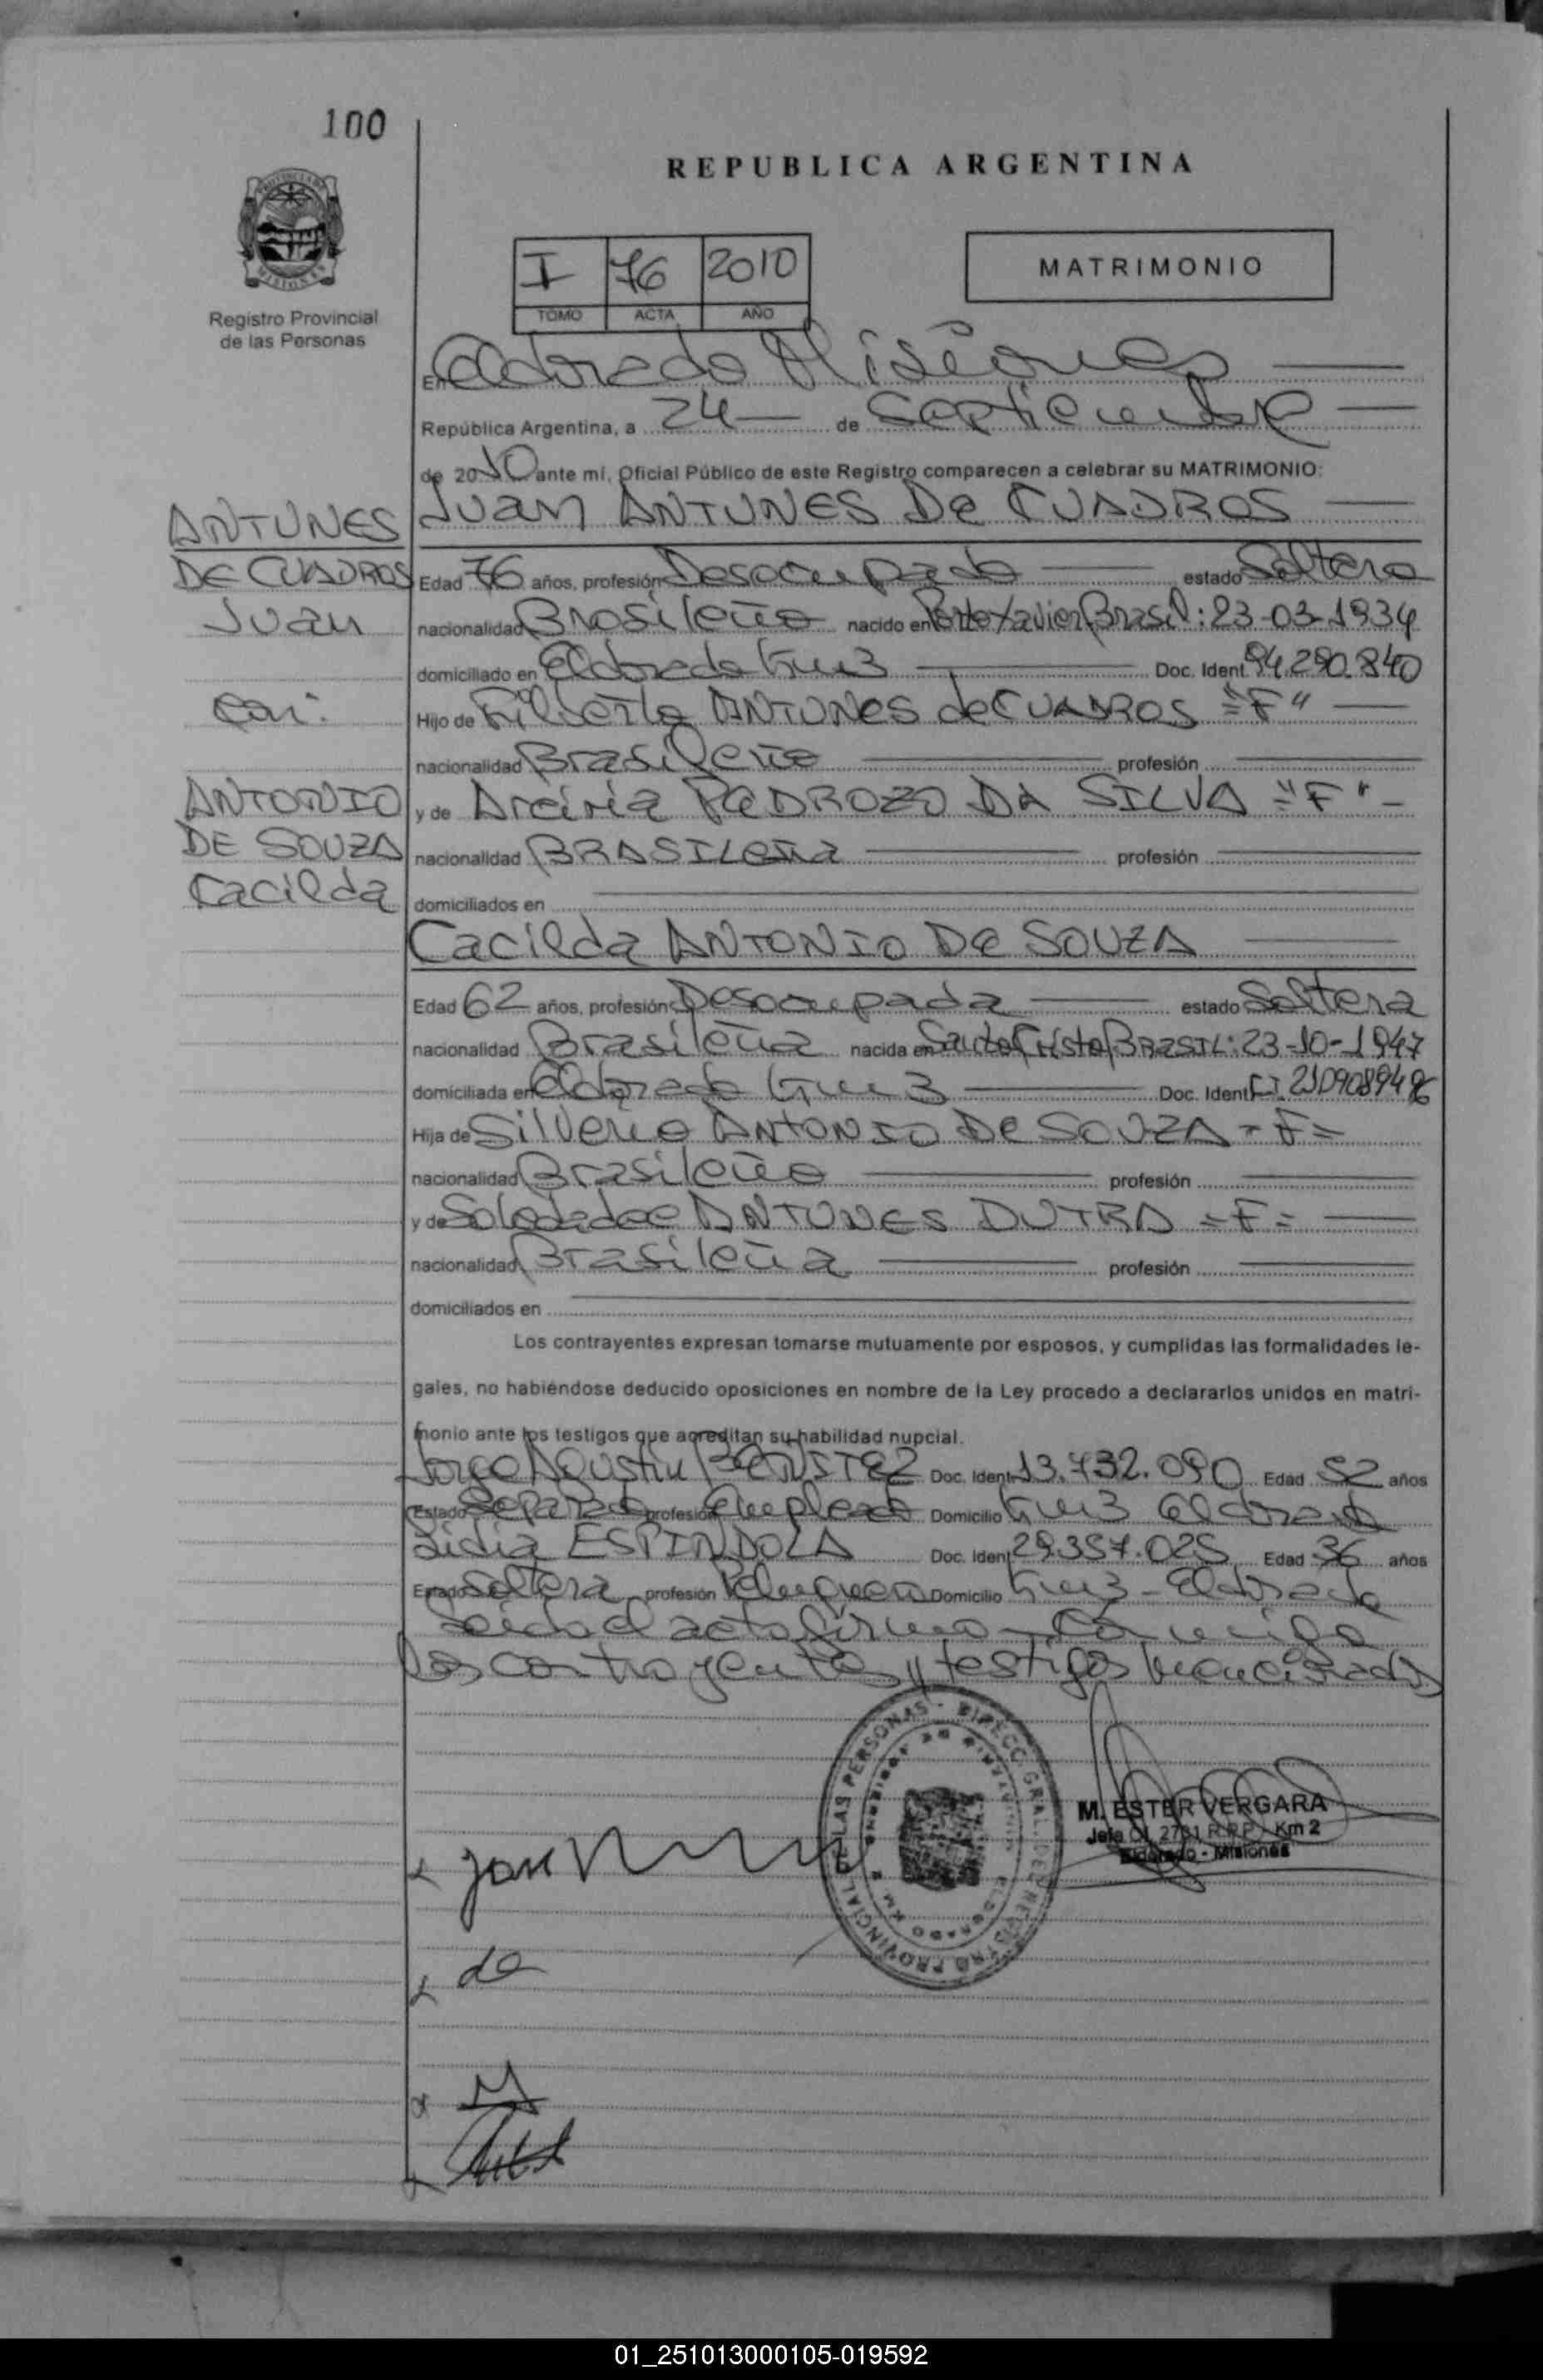 100
REPUBLICA ARGENTINA
I 76 2010
TOMO ACTA AÑO
MATRIMONIO
Registro Provincial
de las Personas
En Eldorado Misiones
República Argentina, a 24 de Septiembre
de 2010 ante mí, Oficial Público de este Registro comparecen a celebrar su MATRIMONIO:
Juan ANTUNES De CUADROS
ANTUNES
DE CUADROS
Juan
con:
ANTONIO
DE SOUZA
Cacilda
Edad 76 años, profesión Desocupado estado Soltero
nacionalidad Brasileño nacido en Porto Xavier Brasil: 23-03-1934
domiciliado en Eldorado Km 3 Doc. Ident. 94.290.840
Hijo de Filberto ANTUNES de CUADROS "F"
nacionalidad Brasileño profesión
y de PEDROZO DA SILVA "F"
nacionalidad BRASILeña profesión
domiciliados en
Cacilda ANTONIO De SOUZA
Edad 62 años, profesión Desocupada estado Soltera
nacionalidad Brasileña nacida en Santo Cristo BRASIL: 23-10-1947
domiciliada en Eldorado Km 3 Doc. Ident. CI.
Hija de Silverio ANTONIO De SOUZA =F=
nacionalidad Brasileño profesión
y de ANTUNES DUTRA =F=
nacionalidad Brasileña profesión
domiciliados en
Los contrayentes expresan tomarse mutuamente por esposos, y cumplidas las formalidades le-
gales, no habiéndose deducido oposiciones en nombre de la Ley procedo a declararlos unidos en matri-
monio ante los testigos que acreditan su habilidad nupcial.
Jorge Agustin BENITEZ Doc. Ident. 13.732.090 Edad 52 años
Estado Separado profesión Empleado Domicilio Km 3 Eldorado
Lidia ESPINDOLA Doc. Ident. 29.357.025 Edad 36 años
Estado Soltera profesión Peluquera Domicilio Km 3 - Eldorado
Leida el acta firman conmigo
los contrayentes y testigos mencionados
PROVINCIAL DE LAS PERSONAS - DIRECC. GRAL. DEL REGISTRO
M. ESTER VERGARA
Jefa Of. 2731 R.P.P. Km 2
Eldorado - Misiones
x Juan
x de
x
x
01_251013000105-019592